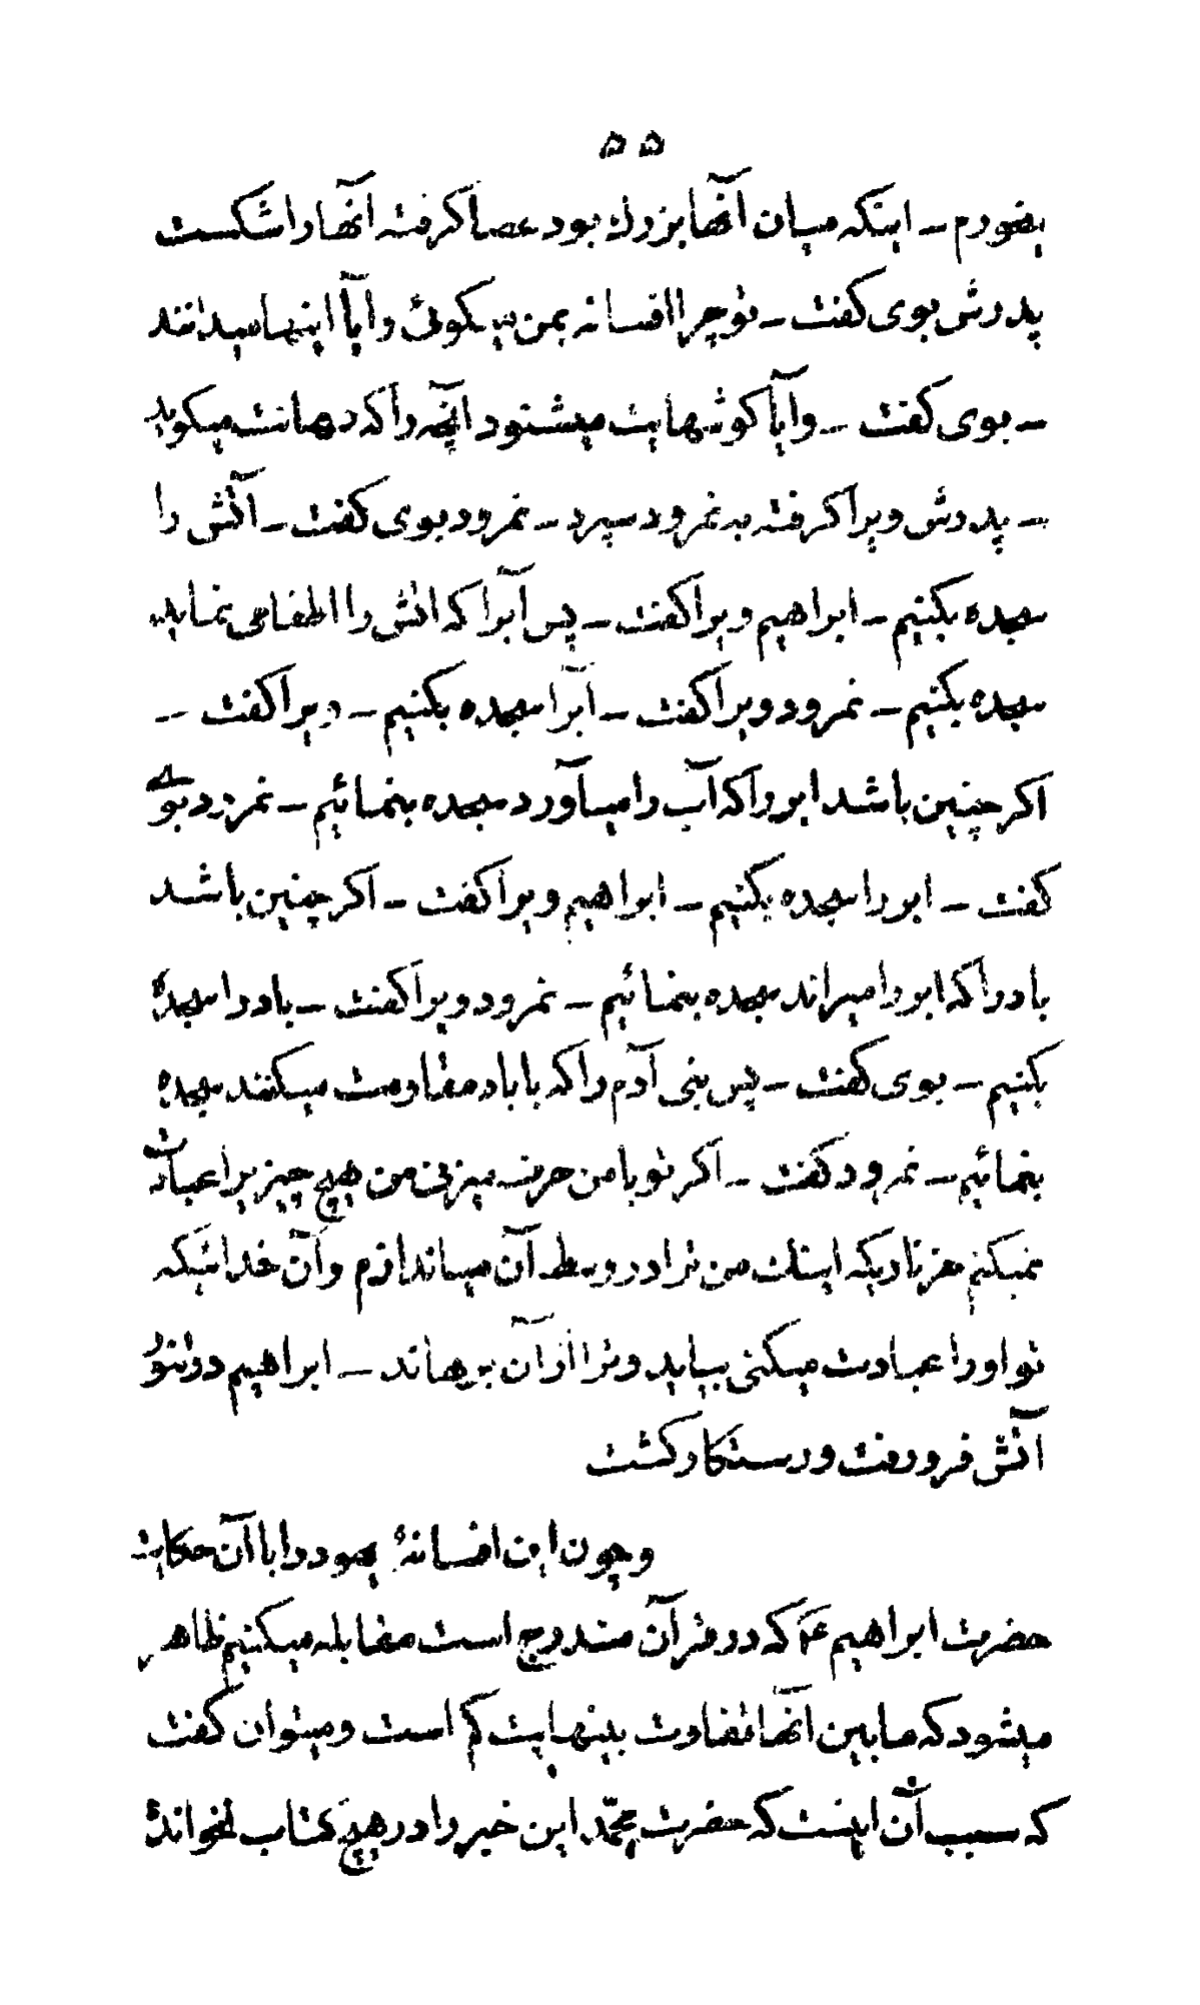 ۵۵
بخورم ــ اینکه میان آنها بزرك بود عصا کرفته آنها را شکست
پدرش بوی کفت ــ تو چرا افسانه بمن میکوئی وآیا اینها میدانند
ــ بوی کفت ــ وآیا کوشهایت میشنود انچه را که دهانت میکوید
ــ پدرش ویرا کرفته به نمرود سپرد ــ نمرود بوی کفت ــ آتش را
سجده بکنیم ــ ابراهیم ویرا کفت ــ پس آبرا که اتش را اطفا می نماید
سجده بکنیم ــ نمرود ویرا کفت ــ آبرا سجده بکنیم ــ ویرا کفت ــ
اکر چنین باشد ابر را که آب را میآورد سجده بنمائیم ــ نمرود بوی
کفت ــ ابر را سجده بکنیم ــ ابراهیم ویرا کفت ــ اکر چنین باشد
باد را که ابر را میراند سجده بنمائیم ــ نمرود ویرا کفت ــ باد را سجدهٔ
بکنیم ــ بوی کفت ــ پس بنی آدم را که با باد مقاومت میکنند سجدهٔ
بنمائیم ــ نمرود کفت ــ اکر تو با من حرف میزنی من هیچ چیز را عبادت
نمیکنم مغر ناریکه اینك من ترا در وسط آن میاندازم وآن خدائیکه
تو او را عبادت میکنی بیاید وترا از آن برهاند ــ ابراهیم در تنور
آتش فرو رفت و رستکار کشت
وچون این افسانهٔ یهود را با آن حکایت
حضرت ابراهیم عم که در قرآن مندرج است مقابله میکنیم ظاهر
میشود که مابین آنها تفاوت بینهایت کم است ومیتوان کفت
که سبب آن اینست که حضرت محمّد این خبر را در هیچ کتاب نخواندهٔ